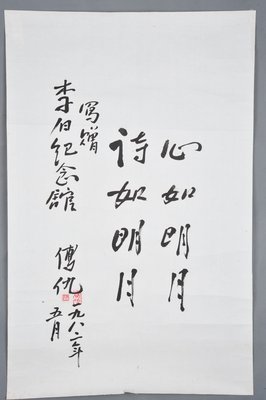 心如明月
诗如明月
写赠
李白纪念馆
傅仇
一九八二年
五月